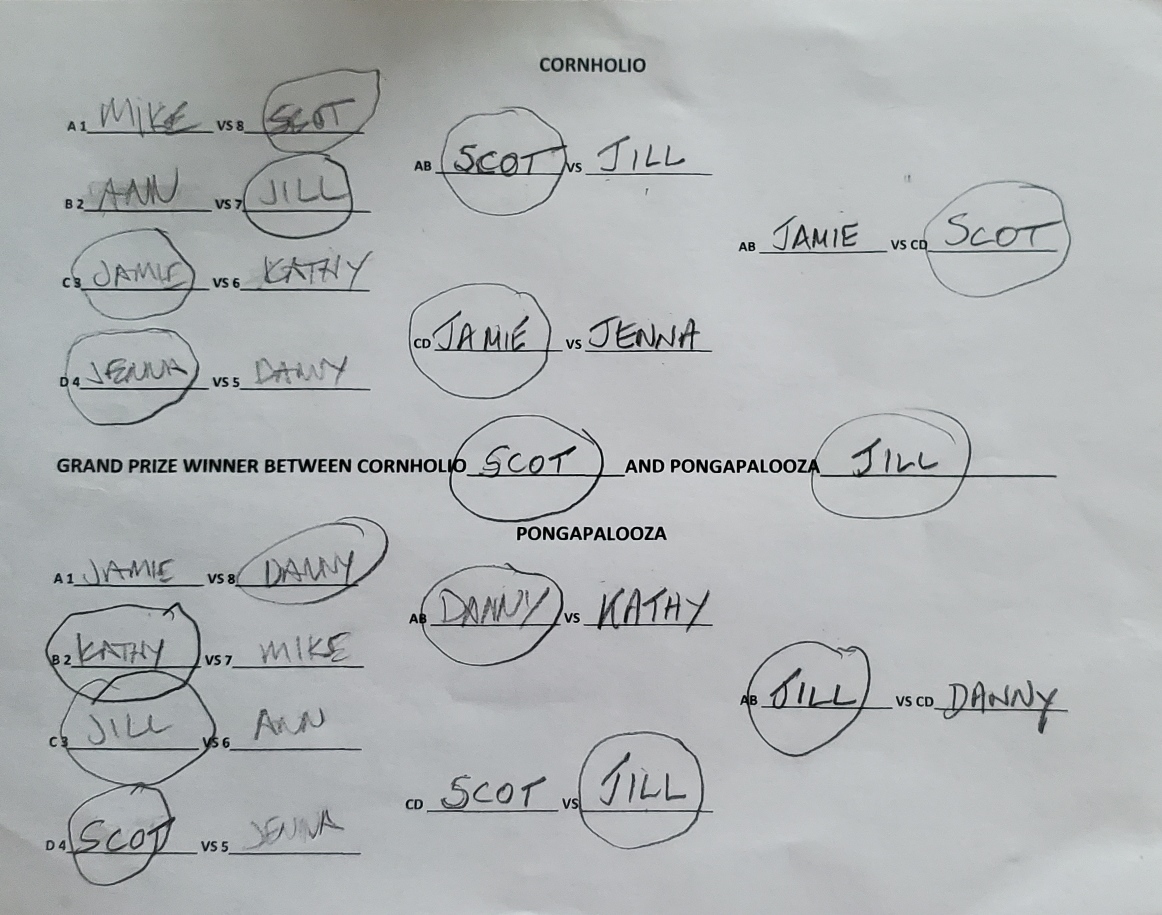 CORNHOLIO
A 1 MIKE VS 8 SCOT
AB SCOT VS JILL
B 2 ANN VS 7 JILL
AB JAMIE VS CD SCOT
C 3 JAMIE VS 6 KATHY
CD JAMIE VS JENNA
D 4 JENNA VS 5 DANNY
GRAND PRIZE WINNER BETWEEN CORNHOLIO SCOT AND PONGAPALOOZA JILL
PONGAPALOOZA
A 1 JAMIE VS 8 DANNY
AB DANNY VS KATHY
B 2 KATHY VS 7 MIKE
AB JILL VS CD DANNY
C 3 JILL VS 6 ANN
CD SCOT VS JILL
D 4 SCOT VS 5 JENNA